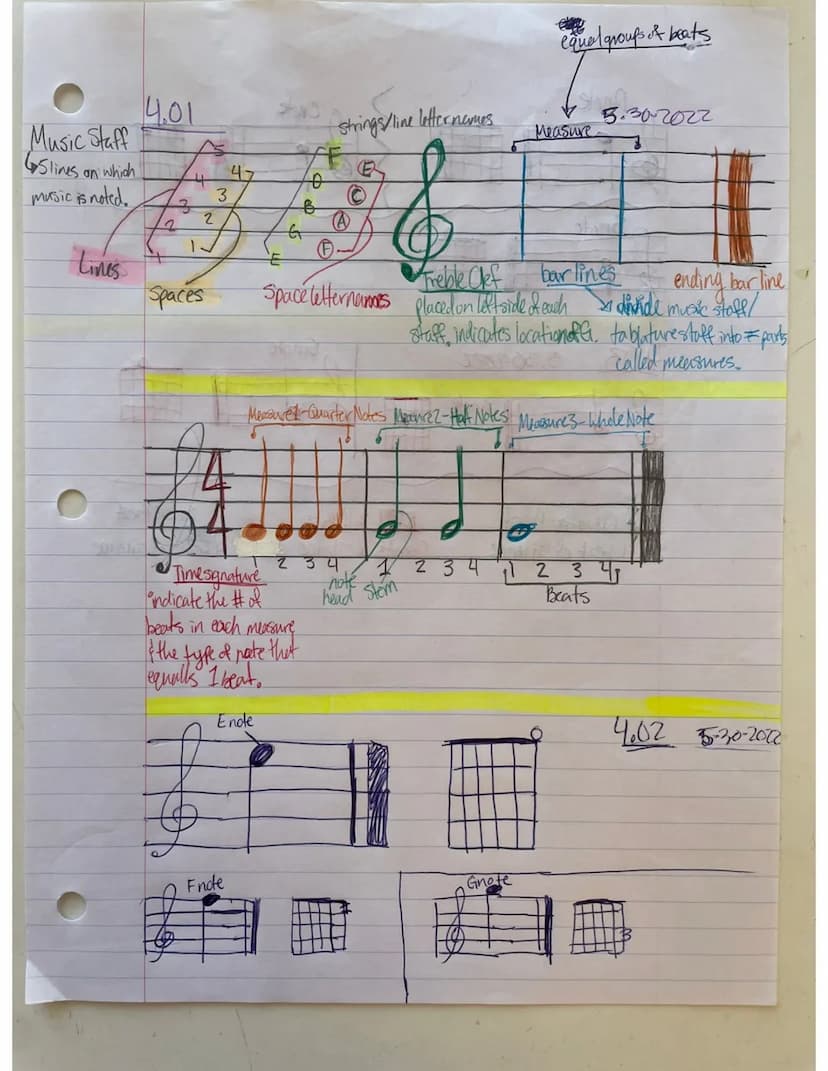 equal groups of beats
4.01
strings/line letter names
5-30-2022
Measure
Music Staff
↳ 5 lines on which
music is noted.
5
4
3
2
1
4
3
2
1
F
D
B
G
E
E
C
A
F
Lines
Spaces
Space letter names
Treble Clef
placed on left side of each
staff, indicates location of G.
bar lines
↘ divide music staff/
tablature staff into = parts
called measures.
ending bar line
Measure 1-Quarter Notes
Measure 2-Half Notes
Measure 3-Whole Note
4
4
1 2 3 4
1 2 3 4
1 2 3 4
note
head
Stem
Beats
Time signature
indicate the # of
beats in each measure
& the type of note that
equalls 1 beat.
E note
4.02
5-30-2022
F note
G note
3